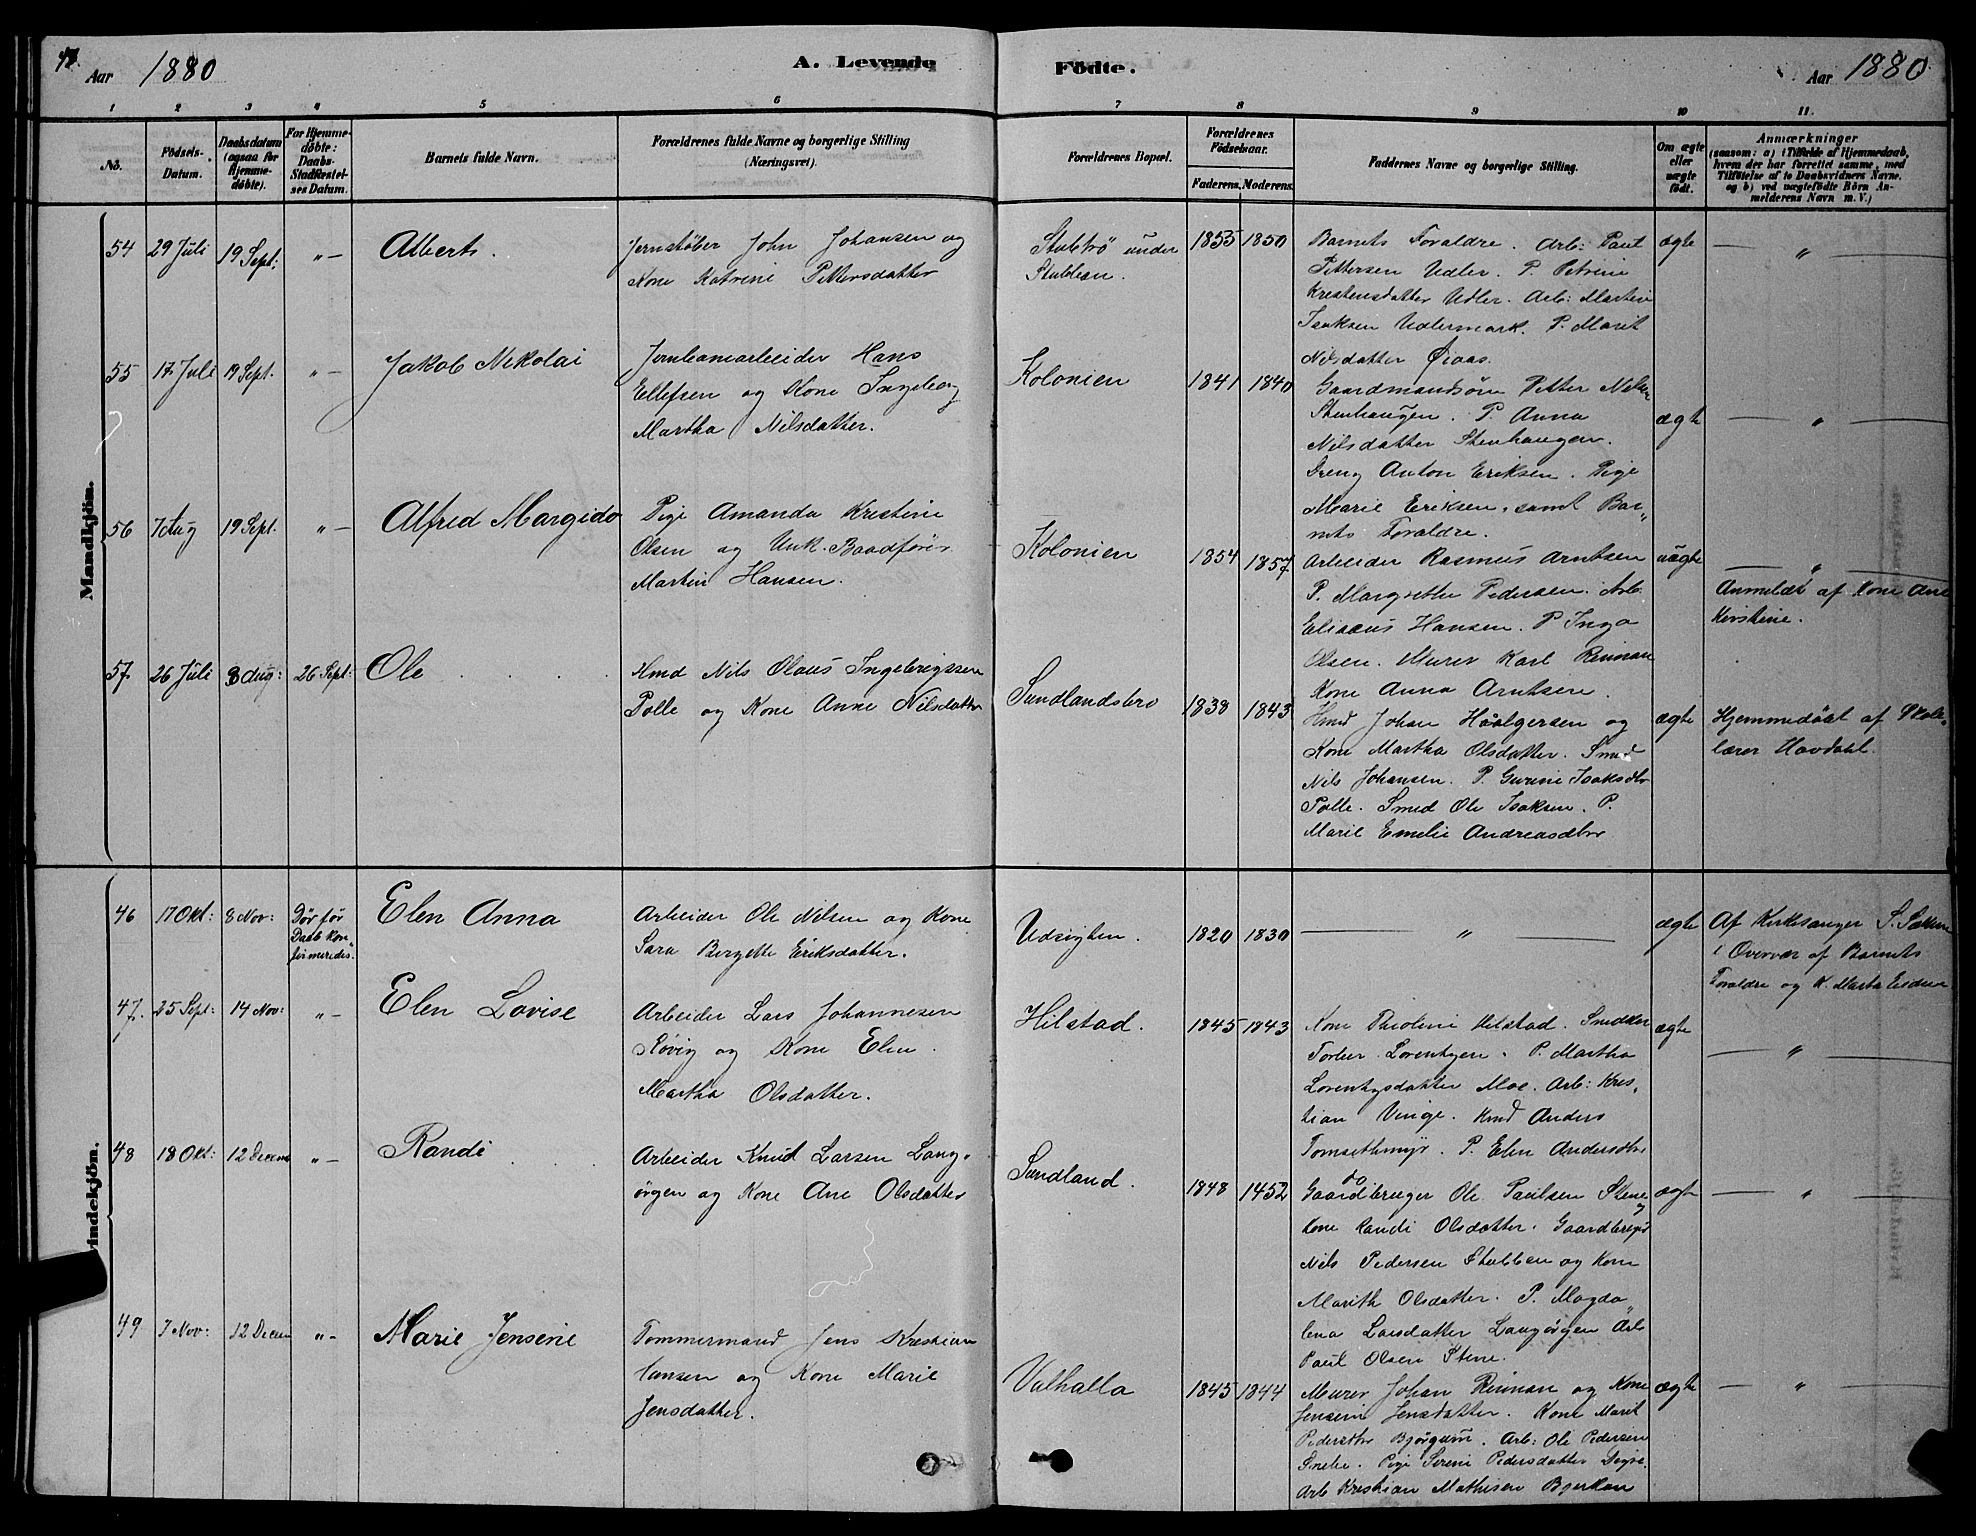 Aar 1880
A. Levende
Födte.
Aar 1880
1 2 3 4 5 6 7 8 9 10 11.
No.
Födsels-
Datum.
Daabsdatum
(ogsaa for
Hjemme-
döbte).
For Hjemme-
döbte:
Daabs-
Stadfæstel-
ses Datum.
Barnets fulde Navn.
Forældrenes fulde Navne og borgerlige Stilling
(Næringsvei).
Forældrenes Bopæl.
Forældrenes
Födselsaar.
Faderens. Moderens.
Faddernes Navne og borgerlige Stilling.
Om ægte
eller
uægte
födt.
Anmærkninger
(saasom: a) i Tilfælde af Hjemmedaab,
hvem der har forrettet samme, med
Tilföielse af to Daabsvidners Navne.
og b) ved uægtefödte Börn An-
melderens Navn m. V.)
Mandkjön.
54 29 Juli 19 Sept: "—
Albert.
Jernstøber John Johansen og
Kone Katrine Pettersdatter
Stubbrø under
Stubban.
1855 1850
Barnets Foraldre. Arb: Paul
Pettersen Udler. P. Petrine
Kristensdatter Udler. Arb: Martin
Isaksen Udlermark. P. Marit
Nilsdatter Øiaas.
ægte — " —
55 17 Juli 19 Sept. "—
Jakob Nikolai
Jernbanearbeider Hans
Ellefsen og Kone Ingeborg
Martha Nilsdatter.
Kolonien
1841 1840
Gaardmandsøn Petter Nilsen
Stenhaugen. P. Anna
Nilsdatter Stenhaugen.
Dreng Anton Eriksen. Pige
Marie Eriksen, samt Bar„
nets Foraldre.
ægte — " —
56 7 Aug 19 Sept. "—
Alfred Margido
Pige Amanda Kristine
Olsen og Unk. Baadfører
Martin Hansen.
Kolonien
1854 1857
Arbeider Rasmus Arntsen
P. Margrethe Pedersen. Arb.
Eliseus Hansen. P Inga
Olsen. Murer Karl Reinan
Kone Anna Arntsen.
uægte — " —
Anmeldt af Kone Ane
Kirstine.
57 26 Juli 8 Aug: 26 Sept:
Ole
Hmd Nils Olaus Ingebrigtsen
Polle og Kone Anne Nilsdatter
Sundlandsbro
1838 1843
Hmd Johan Haalgersen og
Kone Martha Olsdatter. Smed
Nils Johansen. P. Gurine Isaksdtr
Polle. Smed Ole Isaksen. P.
Marie Emelie Andreasdtr
ægte
Hjemmedøbt af Skole„
lærer Hovdahl.
indekjön.
46 17 Okt: 8 Nov:
Dør før
Daab kon„
firmeredes.
Elen Anna
Arbeider Ole Nilsen og Kone
Sara Bergette Eriksdatter.
Udsigten.
1820 1830
— " —
ægte
Af Kirkesanger S.
i Overvær af Barnets
Foraldre og K. Marta
47. 25 Sept: 14 Nov: "—
Elen Lovise
Arbeider Lars Johannesen
Røvig og Kone Elen
Martha Olsdatter.
Hilstad.
1845 1843
Kone Hilstad. Snedker
Torber Lorentzen. P. Martha
Lorentzsdatter Moe. Arb: Kris„
tian Vinge. Hmd Anders
Tomsethmyr. P. Elen Andersdtr
do
ægte — " —
48 18 Okt: 12 Decem "—
Randi
Arbeider Knud Larsen Lang„
ørgen og Kone Ane Olsdatter
Sundland.
1848 1452
Gaardbruger Ole Paulsen Stene og
Kone Randi Olsdatter. Gaardbruger
Nils Pedersen Stubban og Kone
Marith Olsdatter. P. Magda„
lena Larsdatter Langørgen Arb
Paul Olsen Stene.
ægte — " —
49 7 Nov: 12 Decem "—
Marie Jensine
Tømmermand Jens Kristian
Hansen og Kone Marie
Jensdatter.
Valhalla
1845 1844
Murer Johan Reinan og Kone
Jensine Jensdatter. Kone Marit
Pedersdtr Bjørgum. Arb: Ole Pedersen
Smebe. Pige Serine Pedersdatter
Arb Kristian Mathisen Bjerkan
ægte — " —